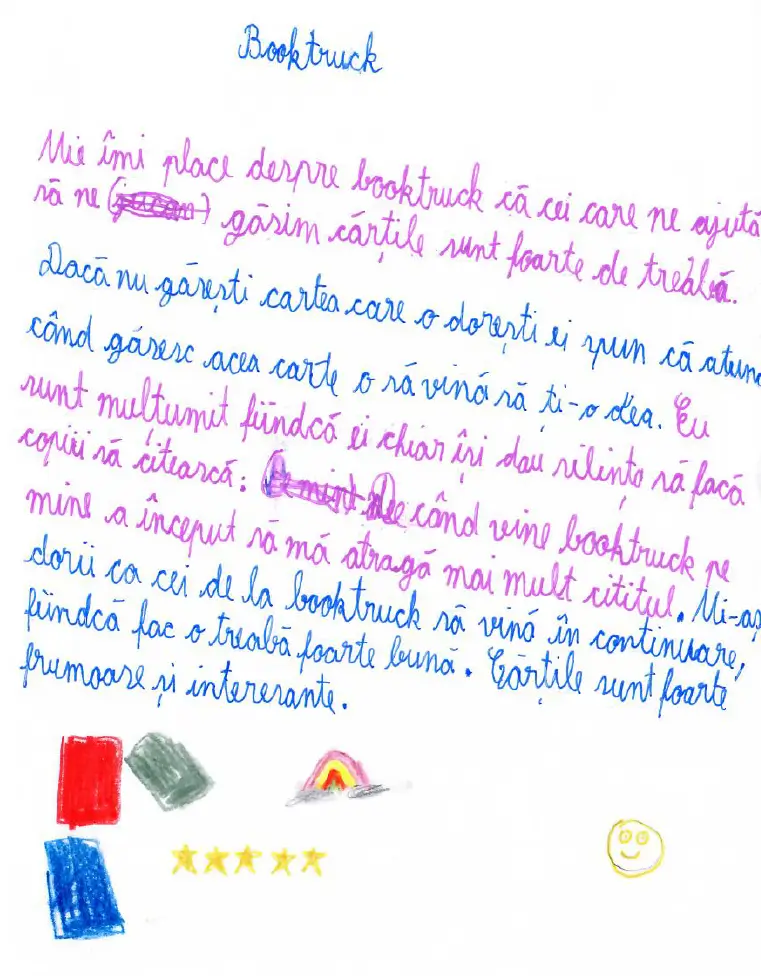 Booktruck
Mie îmi place despre booktruck că cei care ne ajută
să ne găsim cărțile sunt foarte de treabă.
Dacă nu găsești cartea care o dorești ei spun că atunc
când găsesc acea carte o să vină să ți-o dea. Eu
sunt mulțumit fiindcă ei chiar își dau silința să facă
copiii să citească: De când vine booktruck pe
mine a început să mă atragă mai mult cititul. Mi-aș
dorii ca cei de la booktruck să vină în continuare,
fiindcă fac o treabă foarte bună. Cărțile sunt foarte
frumoase și interesante.